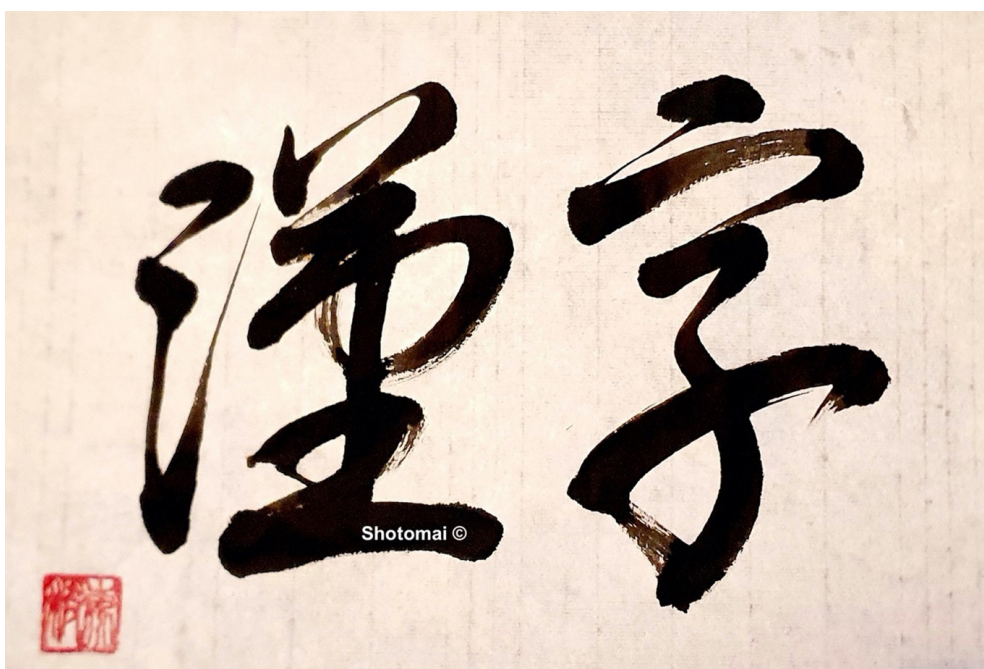 漢字
Shotomai ©